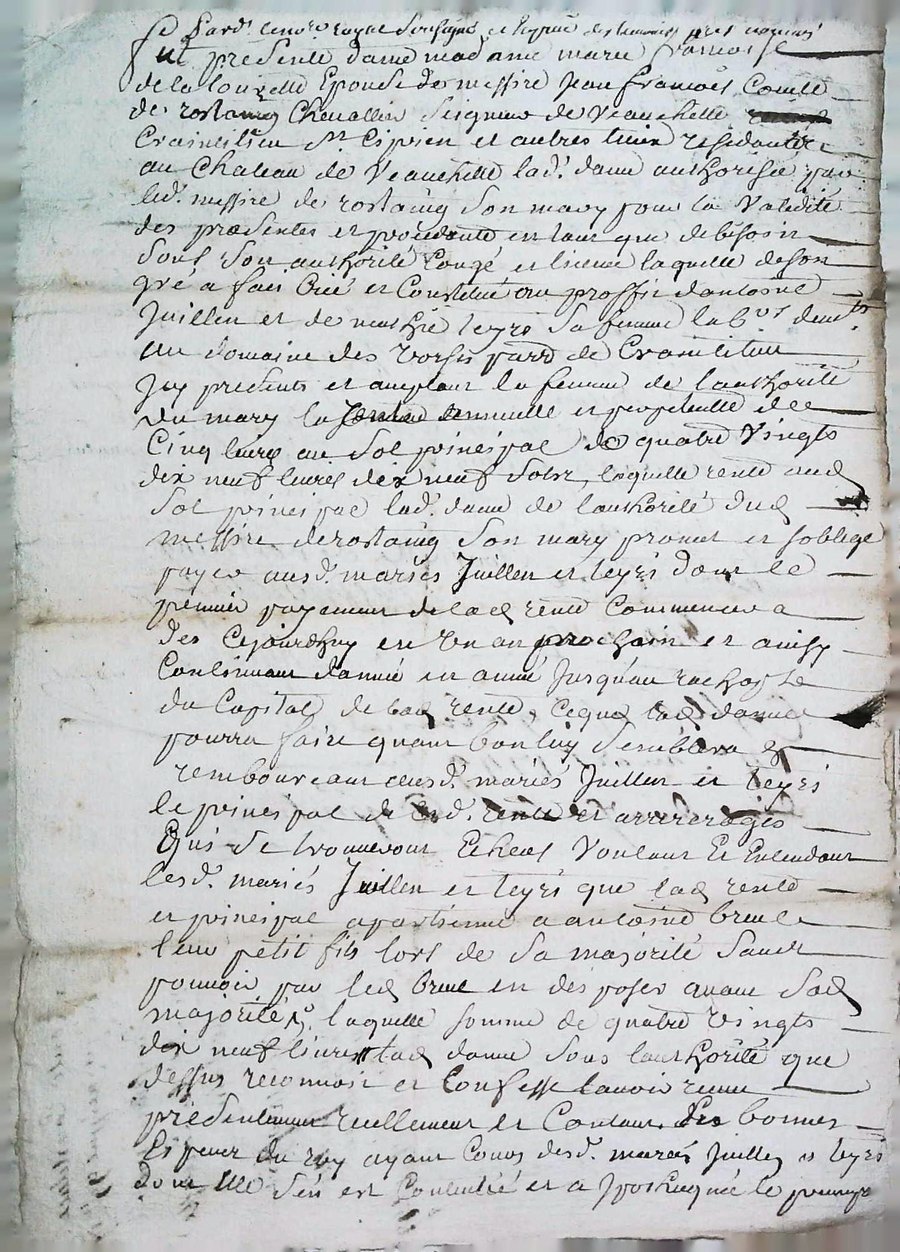 Pard. le no.re royal soussigné et en presence des temoins
fut presente dame madame marie francoise
de la Epouse de messire Jean francois Comte
de rostaing Chevallier Seigneur de Veauchette
Craintilieu St Ciprien et autres lieux residante
au Chateau de Veauchette lad. dame authorisée par
led. messire de rostaing Son mary pour la Validité
des presentes et procedante en tant que de besoin
Sous Son authorité Congé et licence laquelle de Son
gré a fait Créé et Constitué au proffit dantoine
Juillen et de teyre Sa femme
au domaine des parr. de Craintilieu
Icy presents et la femme de lauthorité
du mary la rente annuelle et perpetuelle de
Cinq livres au Sol principal de quatre Vingts
dix neuf livres dix neuf Solz, laquelle rente aud
Sol principal lad. dame de lauthorité dud
messire de rostaing Son mary promet et soblige
payer ausd. mariés Juillen et teyre dont le
premier payement de lad rente Commencera
des Cejourdhuy en Un an prochain et ainsy
Continuant dannée en année Jusqu'au rachapt
du Capital de lad rente, Ceque lad dame
pourra faire quant bon luy Semblera
remboursant ausd. mariés Juillen et teyre
le principal de lad. rente et arrerages
qui se trouveront Echeus Voulant Et Entendant
lesd. mariés Juillen et teyre que lad rente
et principal apartienne a antoine
leur petit fils lors de Sa majorité Sans
pouvoir par led en disposer avant Sad
majorité, laquelle somme de quatre Vingts
dix neuf livres lad dame Sous lauthorité que
dessus reconnoit et Confesse lavoir receue
presentement reellement et Contant bonnes
Especes du roy ayant Cours desd. mariés Juillen et teyre
dont Elle Sen est Contentée et a hypothequée le